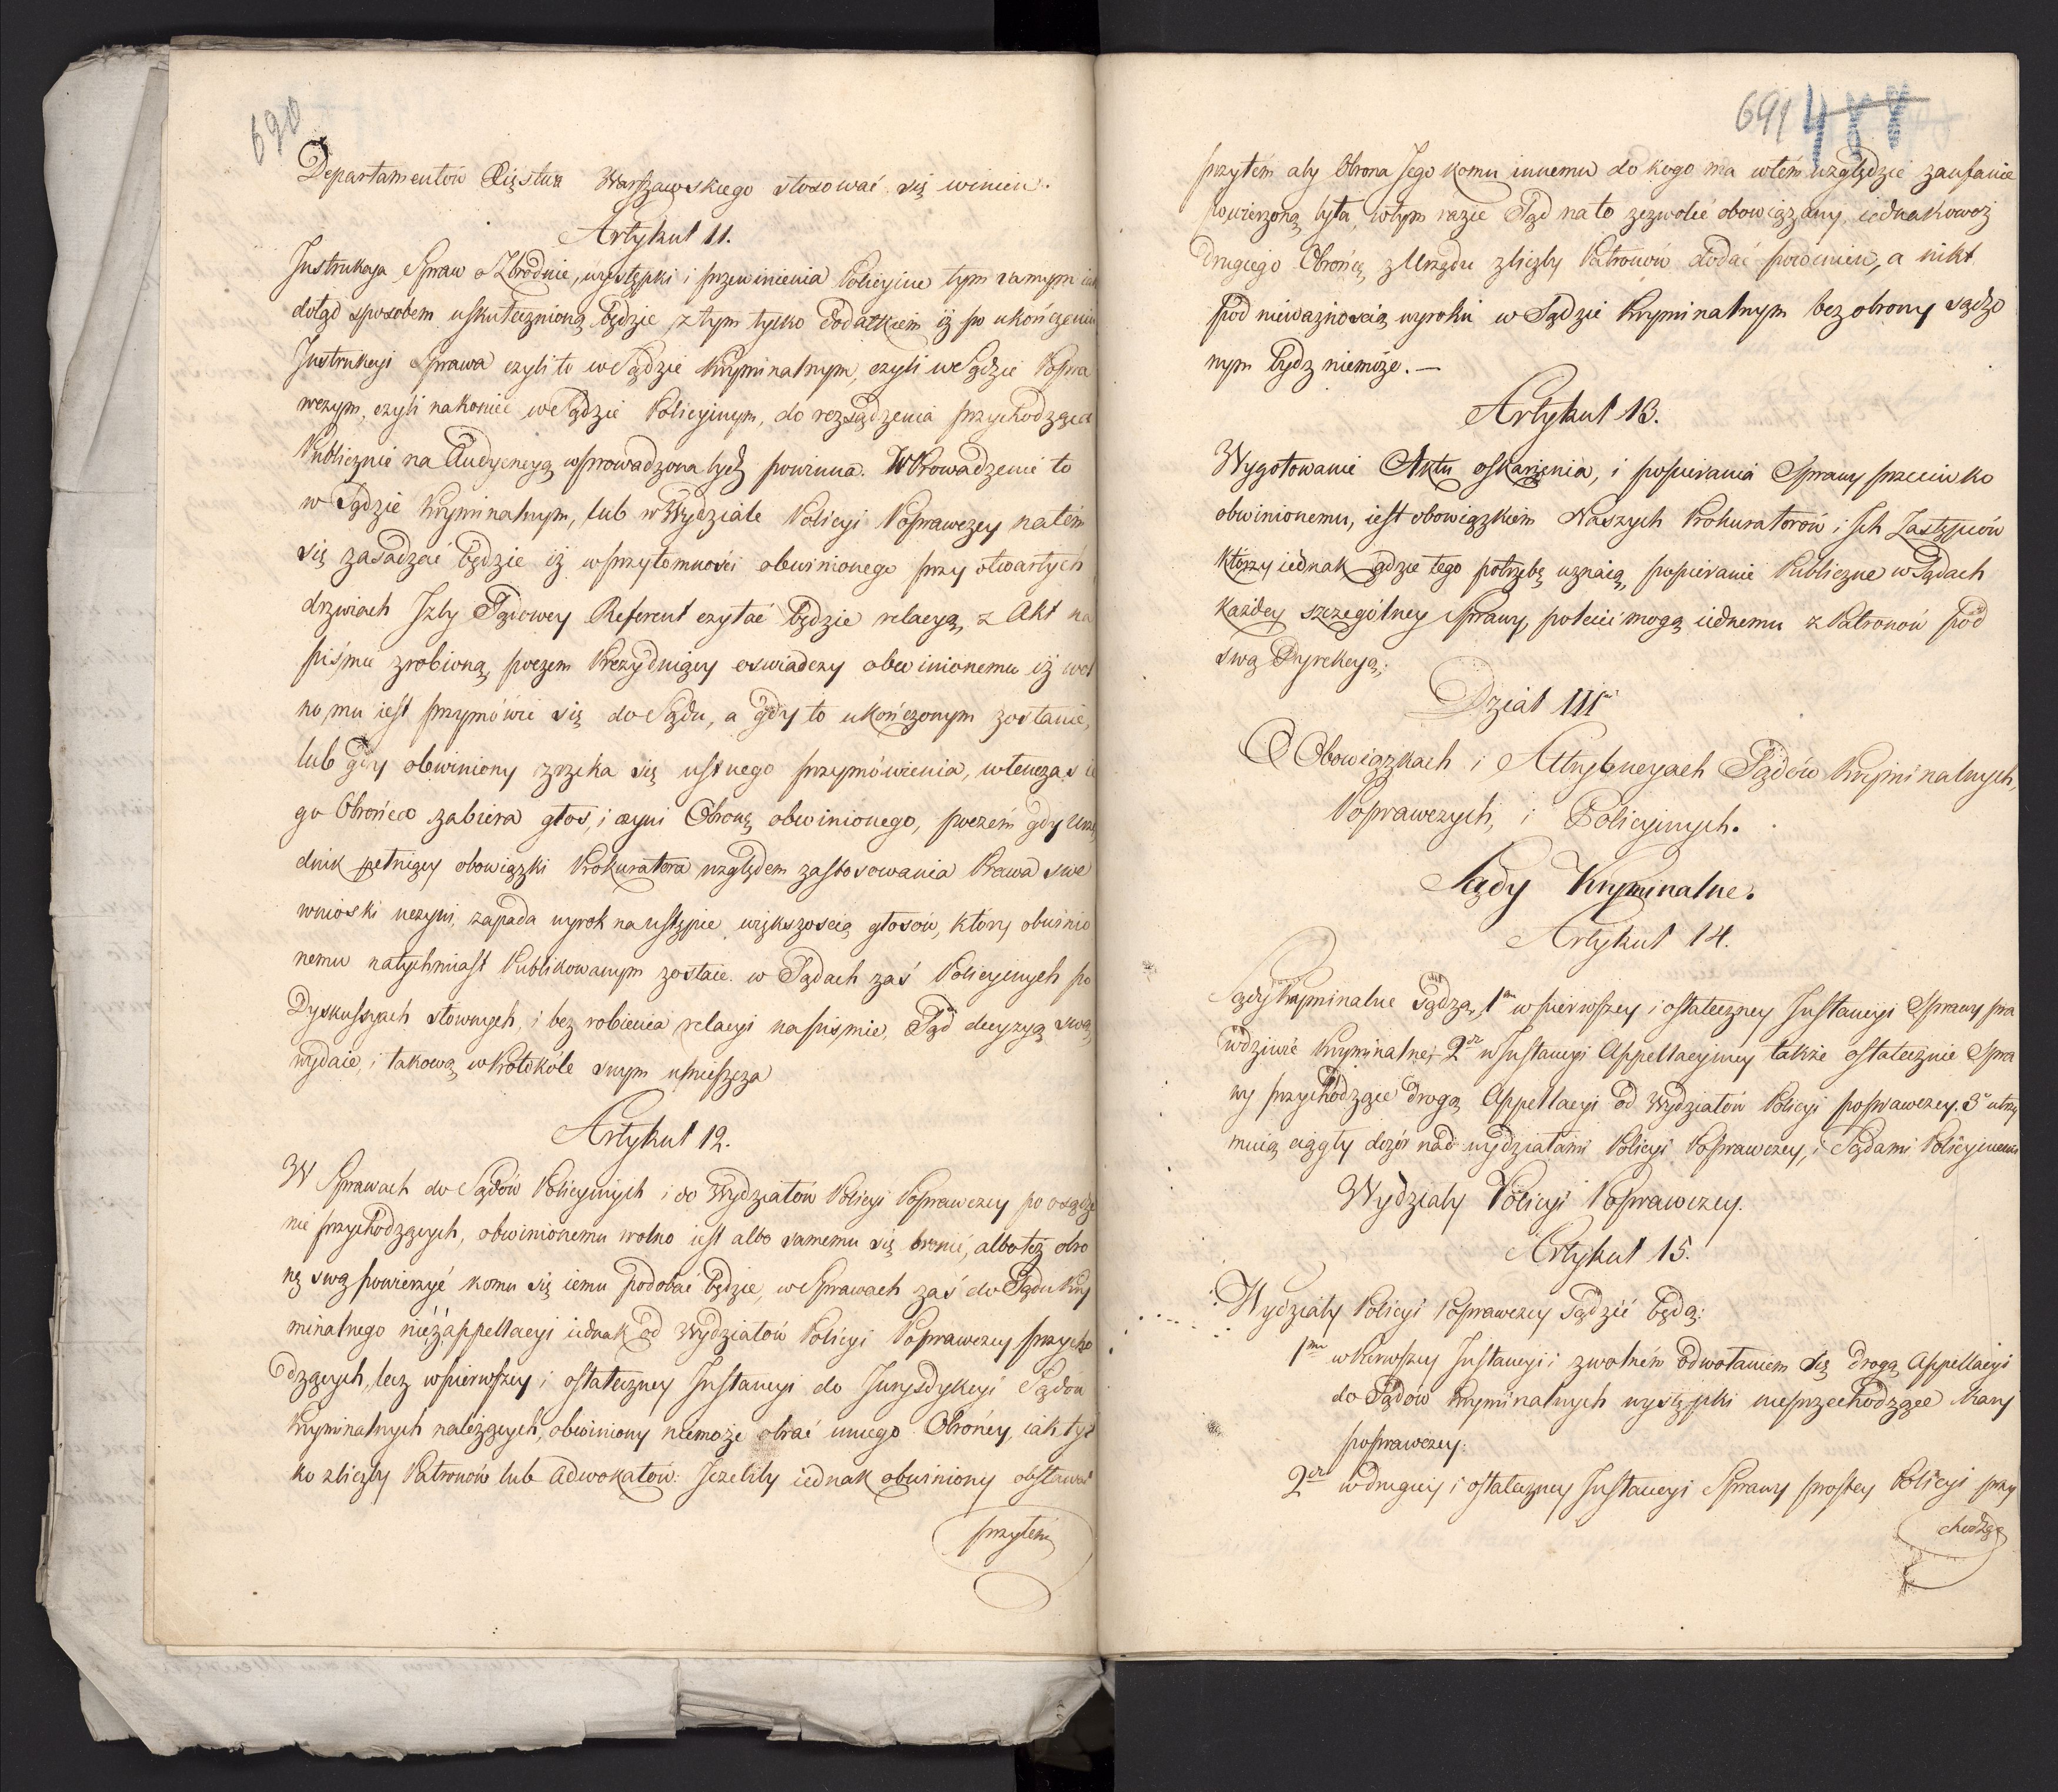 690
Departamentów Xięstwa Warszawskiego stosować się winien.
Artykuł 11.
Instrukcya Spraw o Zbrodnie, występki i przewinienia Policyine tym samym iak
dotąd sposobem uskutecznioną będzie z tym tylko dodatkiem iż po ukończeniu
Instrukcyi Sprawa czyli to w Sądzie Kryminalnym, czyli w Sądzie Popra
wczym, czyli nakoniec w Sądzie Policyinym, do rozsądzenia przychodząca
Publicznie na Audyencyą wprowadzona bydź powinna. Wprowadzenie to
w Sądzie Kryminalnym, lub w Wydziale Policyi Poprawczey na tém
się zasadzać będzie iż w przytomności obwinionego przy otwartych
drzwiach Izby Sądowey Referent czytać będzie relacyą z Akt na
piśmie zrobioną, poczem Prezyduiący oswiadczy obwinionemu iż wol
no mu iest przymówić się do Sądu, a gdy to ukończonym zostanie,
lub gdy obwiniony zrzeka się ustnego przymówienia, wtenczas ie
go Obrońca zabiera głos, i czyni Obronę obwinionego, poczém gdy Urzę
dnik pełniący obowiązki Prokuratora względem zastosowania Prawa swe
wnioski uczyni, zapada wyrok na ustępie większoscią głosów, który obwinio
nemu natychmiast Publikowanym zostaie. w Sądach zaś Policyinych po
Dyskussyach słownych, i bez robienia relacyi na piśmie, Sąd decyzyą swą
wydaie, i takową w Protokóle swym umieszcza
Artykuł 12.
W Sprawach do Sądów Policyinych i do Wydziałów Policyi Poprawczey po osądze
nie przychodzących, obwinionemu wolno iest albo samemu się bronić, albo też obro
nę swą powierzyć komu się iemu podobać będzie, w Sprawach zaś do Sądu Kry
minalnego nie z appellacyi iednak od Wydziałów Policyi Poprawczey przycho
dzących, lecz w pierwszey i ostateczney Instancyi do Jurysdykcyi Sądów
Kryminalnych należących, obwiniony niemoże obrać innego Obrońcy, iak tyl
ko z liczby Patronów lub Adwokatów. Jeżeliby iednak obwiniony obstawał
przytém
691 488
przytém aby Obrona Jego komu innemu do kogo ma w tém względzie zaufanie
powierzoną była, w tym razie Sąd na to zezwolić obowiązany, iednakowoż
drugiego Obrońcę z Urzędu z liczby Patronów dodać powinien, a nikt
pod nieważnością wyroku w Sądzie Kryminalnym bez obrony sądzo
nym bydz niemoże. —
Artykuł 13.
Wygotowanie Aktu oskarżenia, i popierania Sprawy przeciwko
obwinionemu, iest obowiązkiem Naszych Prokuratorów i Ich Zastępców
którzy iednak gdzie tego potrzebę uznaią, popieranie Publiczne w Sądach
każdey szczególney Sprawy, polecić mogą iednemu z Patronów pod
swą Dyrekcyą;
Dział III
O Obowiązkach i Attrybucyach Sądów Kryminalnych,
Poprawczych, i Policyinych.
Sądy Kryminalne.
Artykuł 14.
Sądy Kryminalne Sądzą, 1mo w pierwszey i ostateczney Instancyi Sprawy pra
wdziwie Kryminalne, 2do w Instancyi Appellacyiney także ostatecznie Spra
wy przychodzące drogą Appellacyi od Wydziałów Policyi poprawczey. 3o utrzy
muią ciągły dozór nad wydziałami Policyi Poprawczey, i Sądami Policyinemi
Wydziały Policyi Poprawczey.
Artykuł 15.
Wydziały Policyi Poprawczey Sądzić będą:
1mo w Pierwszey Instancyi i z wolném odwołaniem się drogą Appellacyi
do Sądów Kryminalnych występki nieprzechodzące Kary
poprawczey.
2do w drugiey i ostateczney Instancyi Sprawy prostey Policyi przy
chodzą